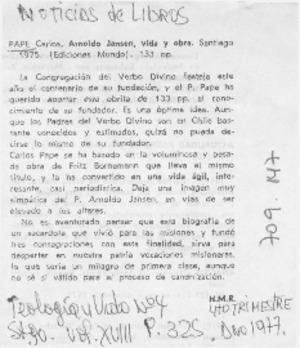 NOTICIAS de LIBROS
PAPE Carlos, Arnoldo Jansen, vida y obra. Santiago
1975. (Ediciones Mundo). 133 pp.
La Congregación del Verbo Divino festeja este
año el centenario de su fundación, y el P. Pape ha
querido aportar esta obrita de 133 pp. al cono-
cimiento de su fundador. Es una óptima idea. Aun-
que los Padres del Verbo Divino son en Chile bas-
tante conocidos y estimados, quizá no pueda de-
cirse lo mismo de su fundador.
Carlos Pape se ha basado en la voluminosa y pesa-
da obra de Fritz Bornemann que lleva el mismo
título, y la ha convertido en una vida ágil, inte-
resante, casi periodística. Deja una imagen muy
simpática del P. Arnoldo Jansen, en vías de ser
elevado a los altares.
No es aventurado pensar que esta biografía de
un sacerdote que vivió para las misiones y fundó
tres congregaciones con esta finalidad, sirva para
despertar en nuestra patria vocaciones misioneras,
lo que sería un milagro de primera clase, aunque
no sé si válido para el proceso de canonización.
H.M.R.
Teología y Vida No4
4to TRIMESTRE
Stgo. Vol. XVIII P. 325
1977.
709. M7